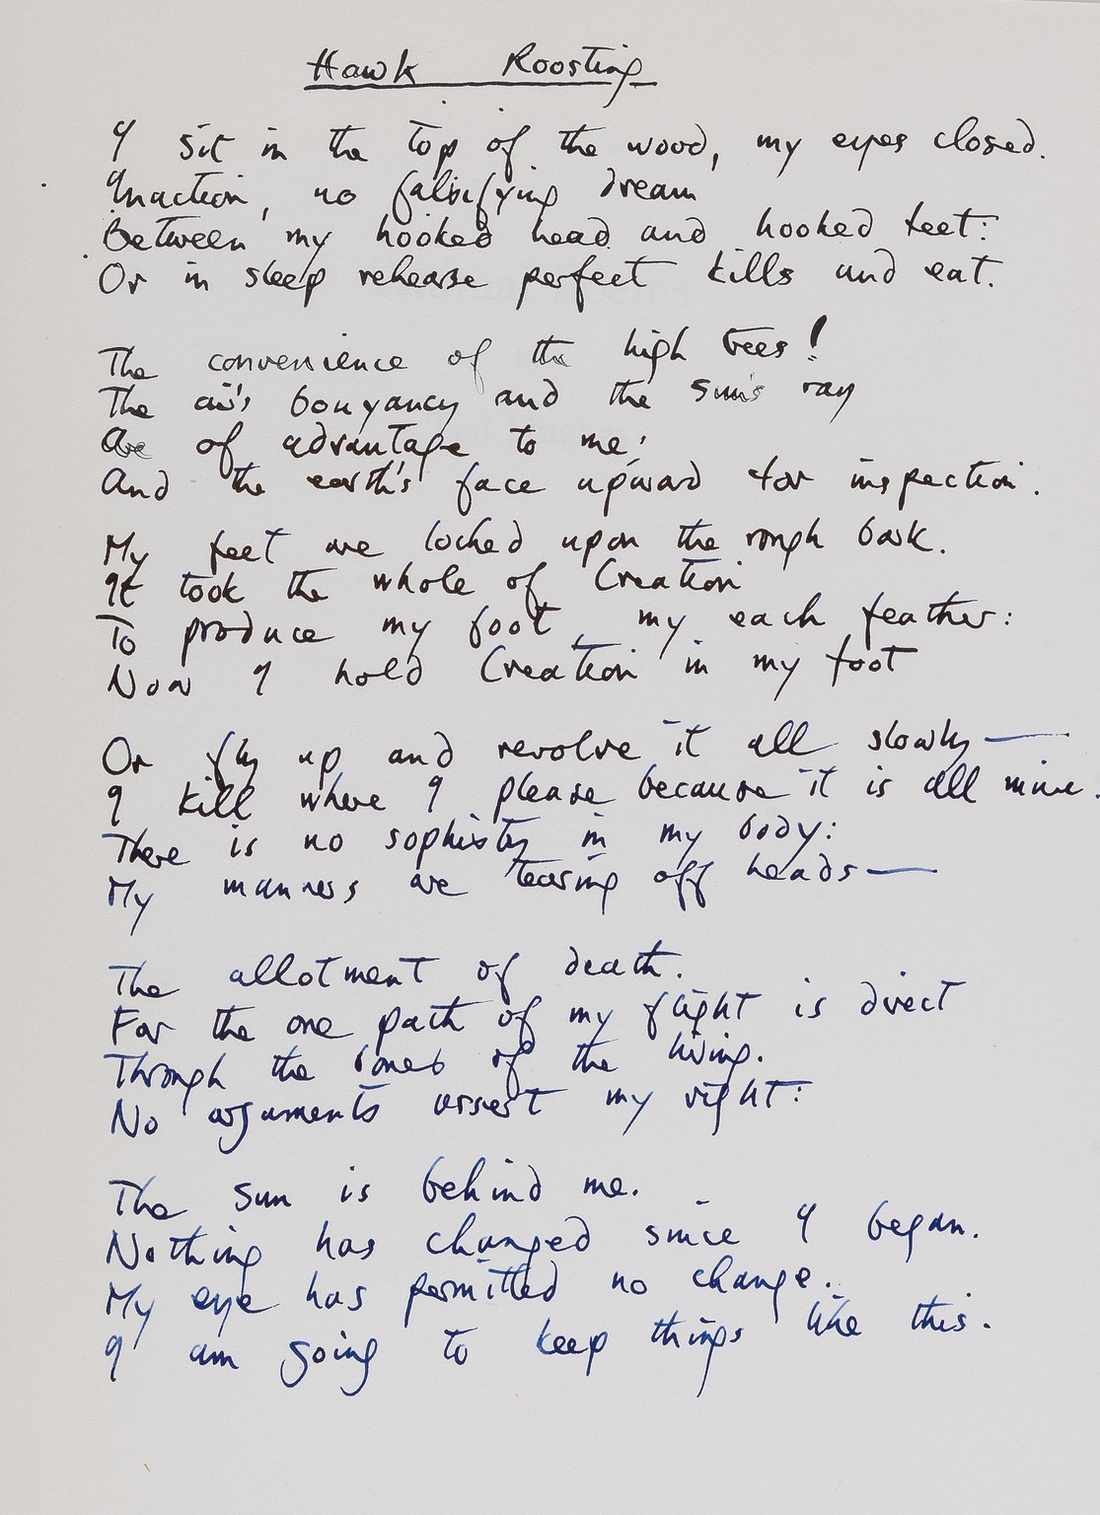 Hawk Roosting
I sit in the top of the wood, my eyes closed.
Inaction, no falsifying dream
Between my hooked head and hooked feet:
Or in sleep rehearse perfect kills and eat.
The convenience of the high trees!
The air's bouyancy and the sun's ray
Are of advantage to me;
And the earth's face upward for inspection.
My feet are locked upon the rough bark.
It took the whole of Creation
To produce my foot, my each feather:
Now I hold Creation in my foot
Or fly up and revolve it all slowly —
I kill where I please because it is all mine.
There is no sophistry in my body:
My manners are tearing off heads —
The allotment of death.
For the one path of my flight is direct
Through the bones of the living.
No arguments assert my right:
The sun is behind me.
Nothing has changed since I began.
My eye has permitted no change.
I am going to keep things like this.